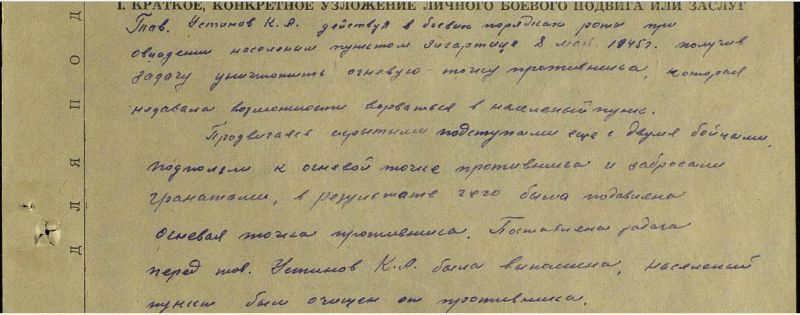 I. КРАТКОЕ, КОНКРЕТНОЕ ИЗЛОЖЕНИЕ ЛИЧНОГО БОЕВОГО ПОДВИГА ИЛИ ЗАСЛУГ
Тов. Устинов К.А. действуя в боевых порядках роты при
овладении населеным пунктом 8 мая 1945г. получив
задачу уничтожить огневую точку противника, которая
недавала возможности ворваться в населеный пункт.
Продвигаясь скрытыми подступами еще с двумя бойцами,
подползли к огневой точке противника и забросали
гранатами, в результате чего была подавлена
огневая точка противника. Поставлена задача
перед тов. Устинов К.А. была выполнена, населеный
пункт был очищен от противника.
ДЛЯ ПОД